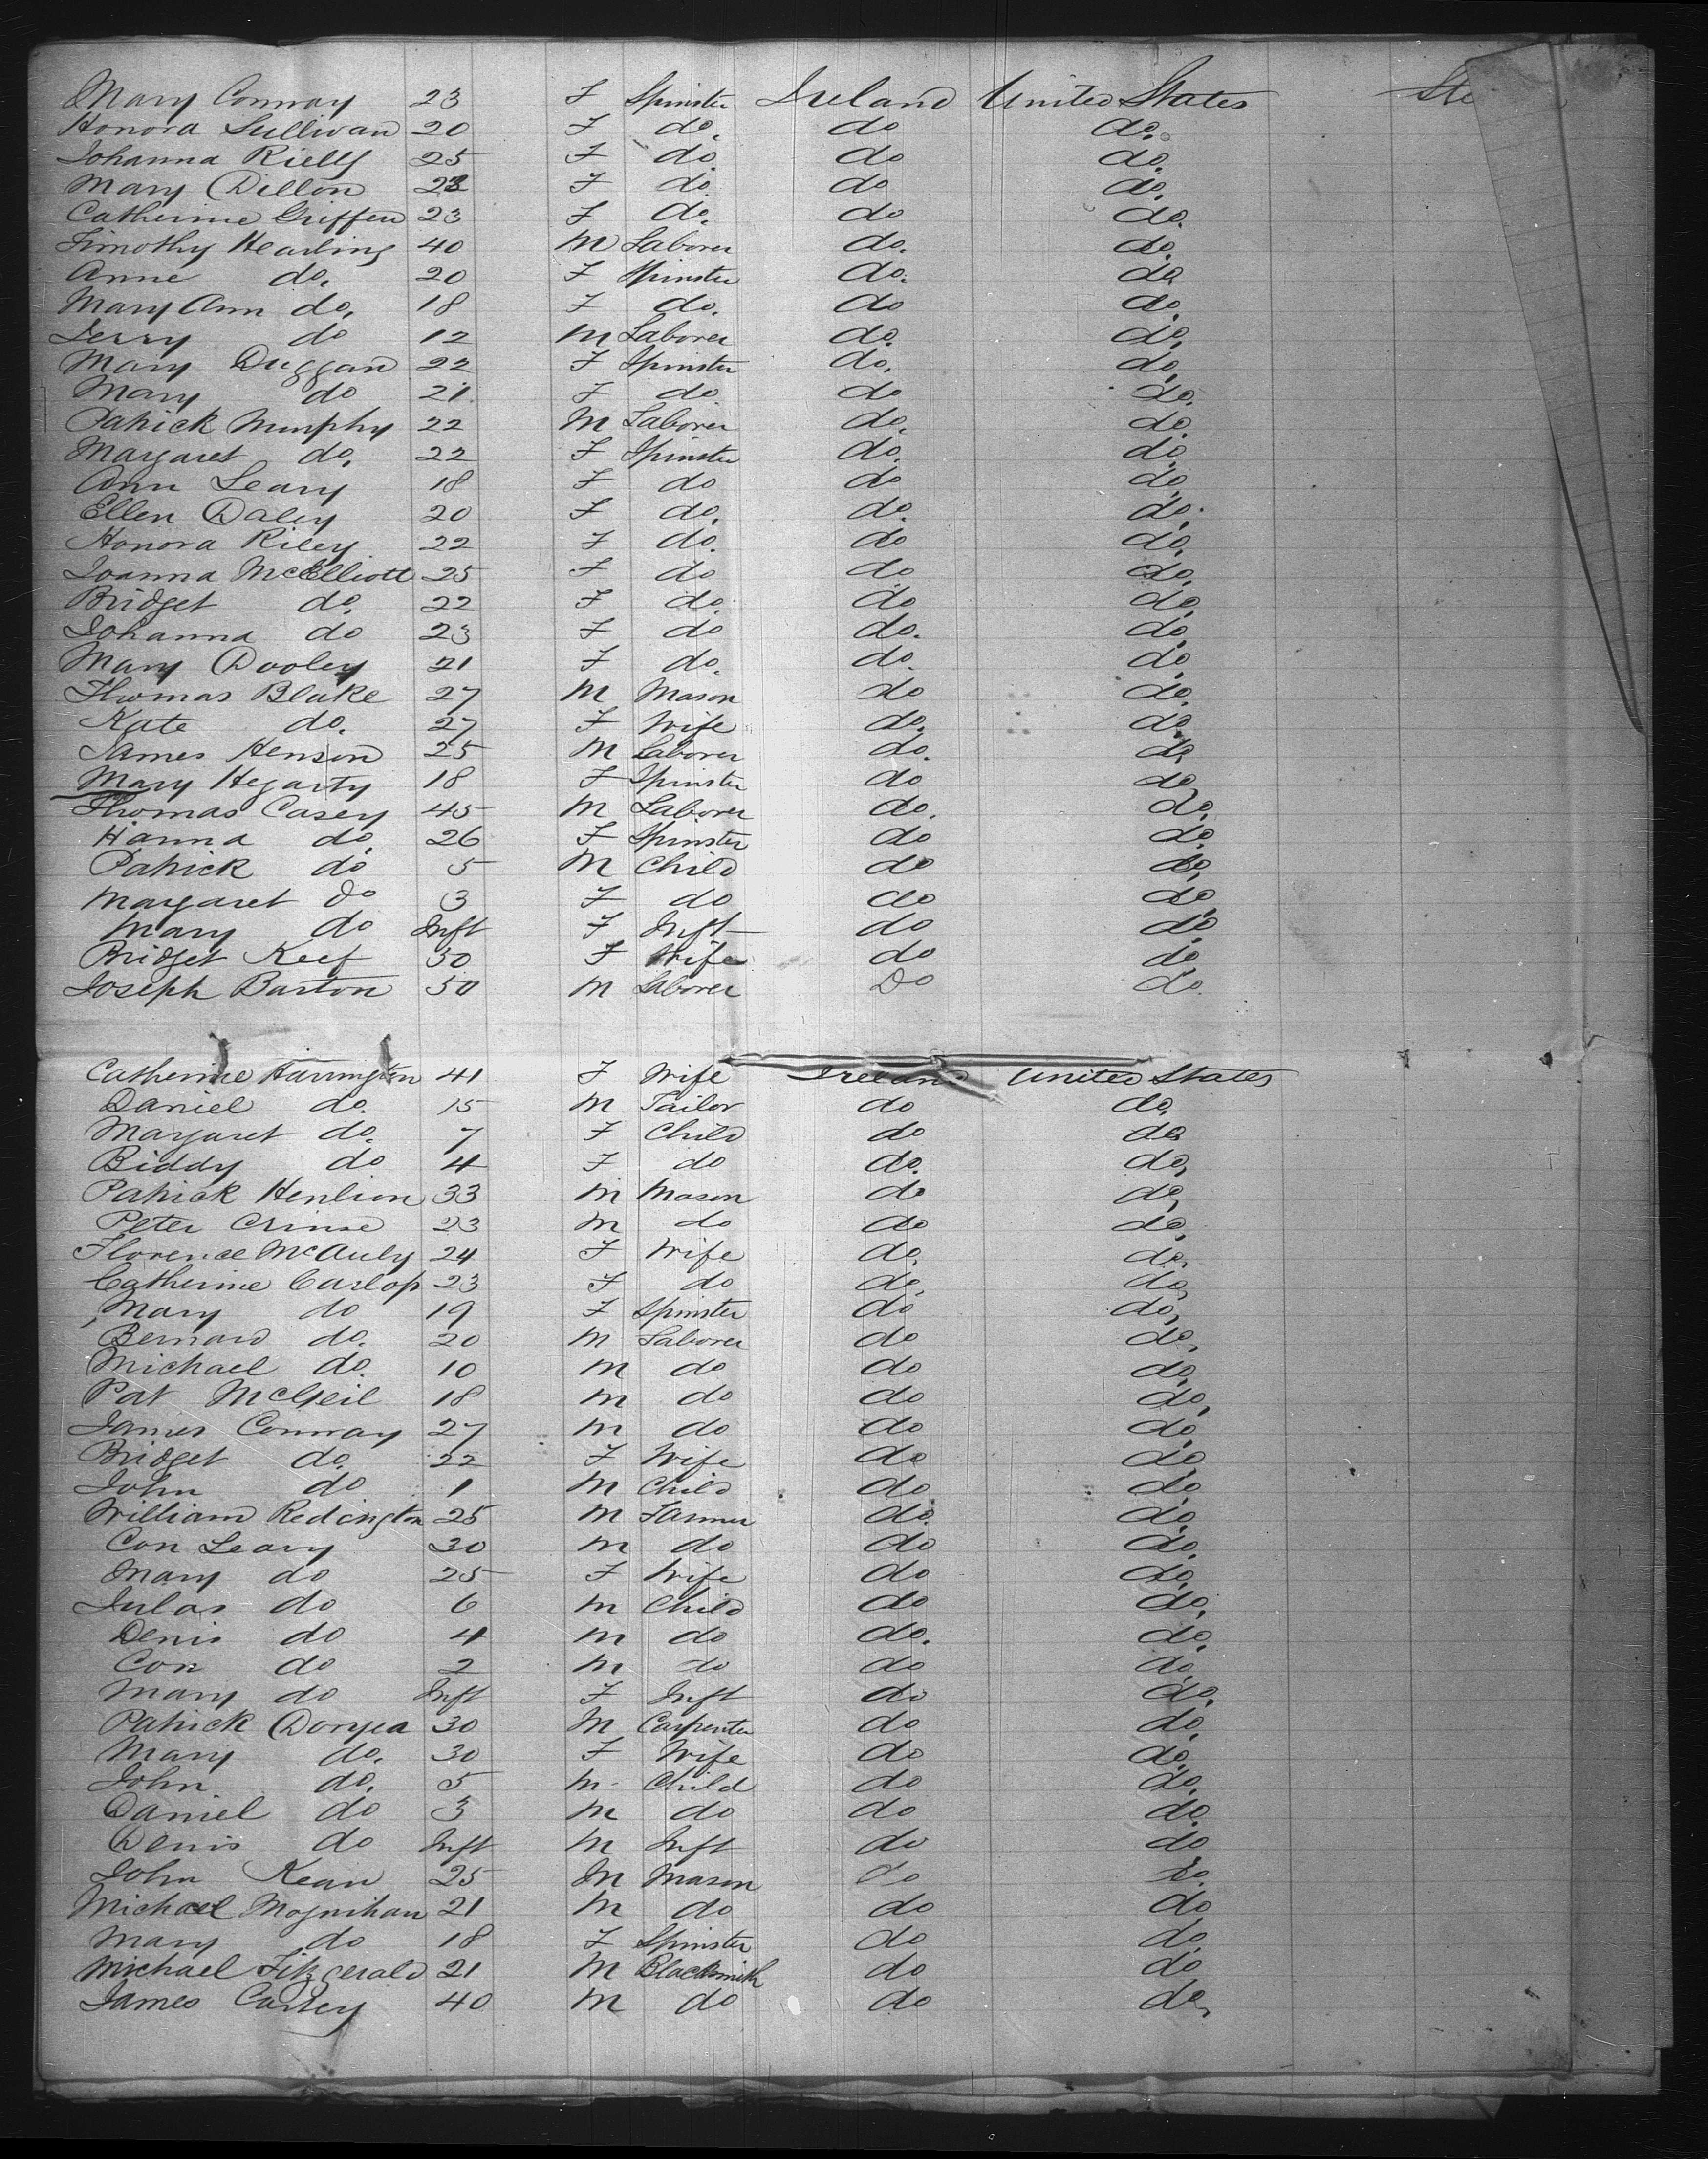 Mary Conway 23 F Spinster Ireland United States Ste
Honora Sullivan 20 F do. do do.
Johanna Rielly 25 F do do do.
Mary Dillon F do do do.
Catherine Griffen 23 F do. do do.
Timothy Hearling 40 M Laborer do. do.
Anne do. 20 F Spinster do. do.
Mary Ann do. 18 F do. do do.
Jerry do 12 M Laborer do. do.
Mary Duggan 22 F Spinster do. do.
Mary do 21 F do do do.
Patrick Murphy 22 M Laborer do. do.
Margaret do. 22 F Spinster do. do.
Ann Leary 18 F do do do.
Ellen Daley 20 F do. do. do.
Honora Riley 22 F do. do do.
Joanna McElliott 25 F do do do.
Bridget do. 22 F do. do do.
Johanna do 23 F do do. do.
Mary Dooley 21 F do. do. do.
Thomas Blake 27 M Mason do do.
Kate do. 27 F Wife do. do.
James Henson 25 M Laborer do. do.
Mary Hegarty 18 F Spinster do do.
Thomas Casey 45 M Laborer do. do.
Hanna do. 26 F Spinster do do.
Patrick do 5 M Child do do.
Margaret do 3 F do do do.
Mary do Inft F Inft do do
Bridget Keef 30 F Wife do do
Joseph Barton 50 M Laborer Do do.
Catherine Harrington 41 F Wife Ireland United States
Daniel do. 15 M Tailor do do.
Margaret do. 7 F Child do do
Biddy do 4 F do do. do.
Patrick Henlion 33 M Mason do do.
Peter Crinse 23 M do do do.
Florence McAuly 24 F Wife do. do.
Catherine Carlop 23 F do do. do.
Mary do 19 F Spinster do do.
Bernard do. 20 M Laborer do do.
Michael do. 10 M do do do.
Pat McGeil 18 M do do do.
James Conway 27 M do do do.
Bridget do. 22 F Wife do do.
John do 1 M Child do do.
William Redington 25 M Farmer do. do.
Con Leary 30 M do do do.
Mary do 25 F Wife do do.
Julas do 6 M Child do do.
Denis do 4 M do do. do.
Con do 2 M do do do.
Mary do Inft F Inft do do.
Patrick Donyea 30 M Carpenter do do.
Mary do. 30 F Wife do do.
John do. 5 M Child do do.
Daniel do 3 M do do do.
Denis do Inft M Inft do do
John Kean 25 M Mason do do.
Michael Moynihan 21 M do do do
Mary do 18 F Spinster do do.
Michael Fitzgerald 21 M Blacksmith do do
James 40 M do do do.